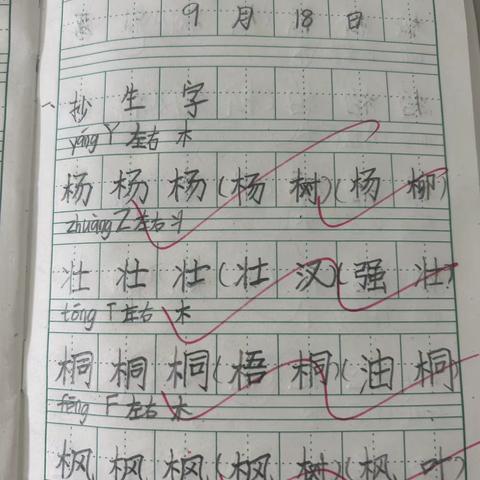 9月18日
一、抄生字
yáng Y 左右 木
杨杨杨(杨树)(杨柳)
zhuàng Z 左右 斗
壮壮壮(壮汉)(强壮)
tóng T 左右 木
桐桐桐(梧桐)(油桐)
fēng F 左右 木
枫枫枫(枫树)(枫叶)